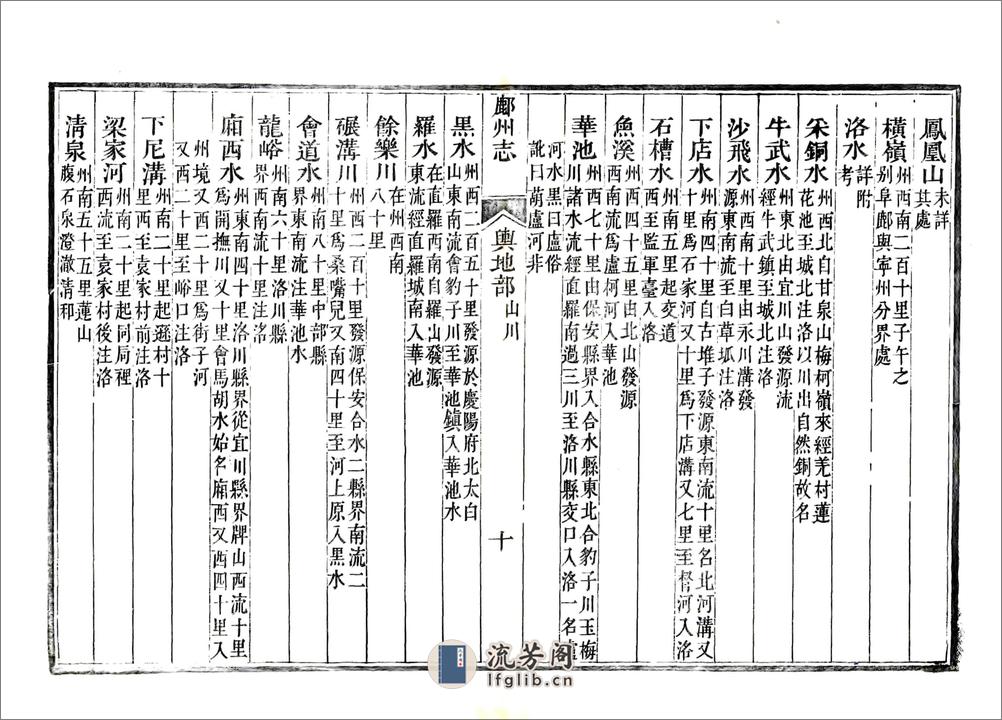 鳳凰山未詳其處
橫嶺州西南二百十里子午之別阜鄜與寧州分界處
洛水詳附考
采銅水州西北自甘泉山梅柯嶺來經羌村蓮花池至城北注洛以川出自然銅故名
牛武水州東北由宜川山發源流經牛武鎮至城北注洛
沙飛水州西南十里由永川溝發源東南流至白草坬注洛
下店水州南四十里自古堆子發源東南流十里名北河溝又十里爲石家河又十里爲下店溝又七里至督河入洛
石槽水州南五里起交道西至監軍臺入洛
魚溪州西四十五里由北山發源西南流爲盧柯河入華池
華池州西七十里由保安縣界入合水縣東北合豹子川玉梅川諸水流經直羅南過三川至洛川縣交口入洛一名盧河水黑曰盧俗訛曰葫盧河非
鄜州志 輿地部 山川 十
黑水州西二百五十里發源於慶陽府北太白山東南流會豹子川至華池鎮入華池水
羅水在直羅西南自羅出發源東流經直羅城南入華池
餘樂川在州西南八十里
碾溝川州西二百十里發源保安合水二縣界南流二十里爲桑嘴兒又南四十里至河上原入黑水
會道水州南八十里中部縣界東南流注華池水
龍峪州南六十里洛川縣界西南流十里注洛
廂西水州東南四十里洛川縣界從宜川縣界牌山西流十里爲開撫川又十里會馬胡水始名廂西又西四十里入州境又西二十里爲街子河又西二十里至峪口注洛
下尼溝州南二十里起遜村十里西至袁家村前注洛
梁家河州南二十里起同局裡西流至袁家村後注洛
清泉州南五十五里蓮山腹石泉澄澈清和
流芳阁
lfglib.cn